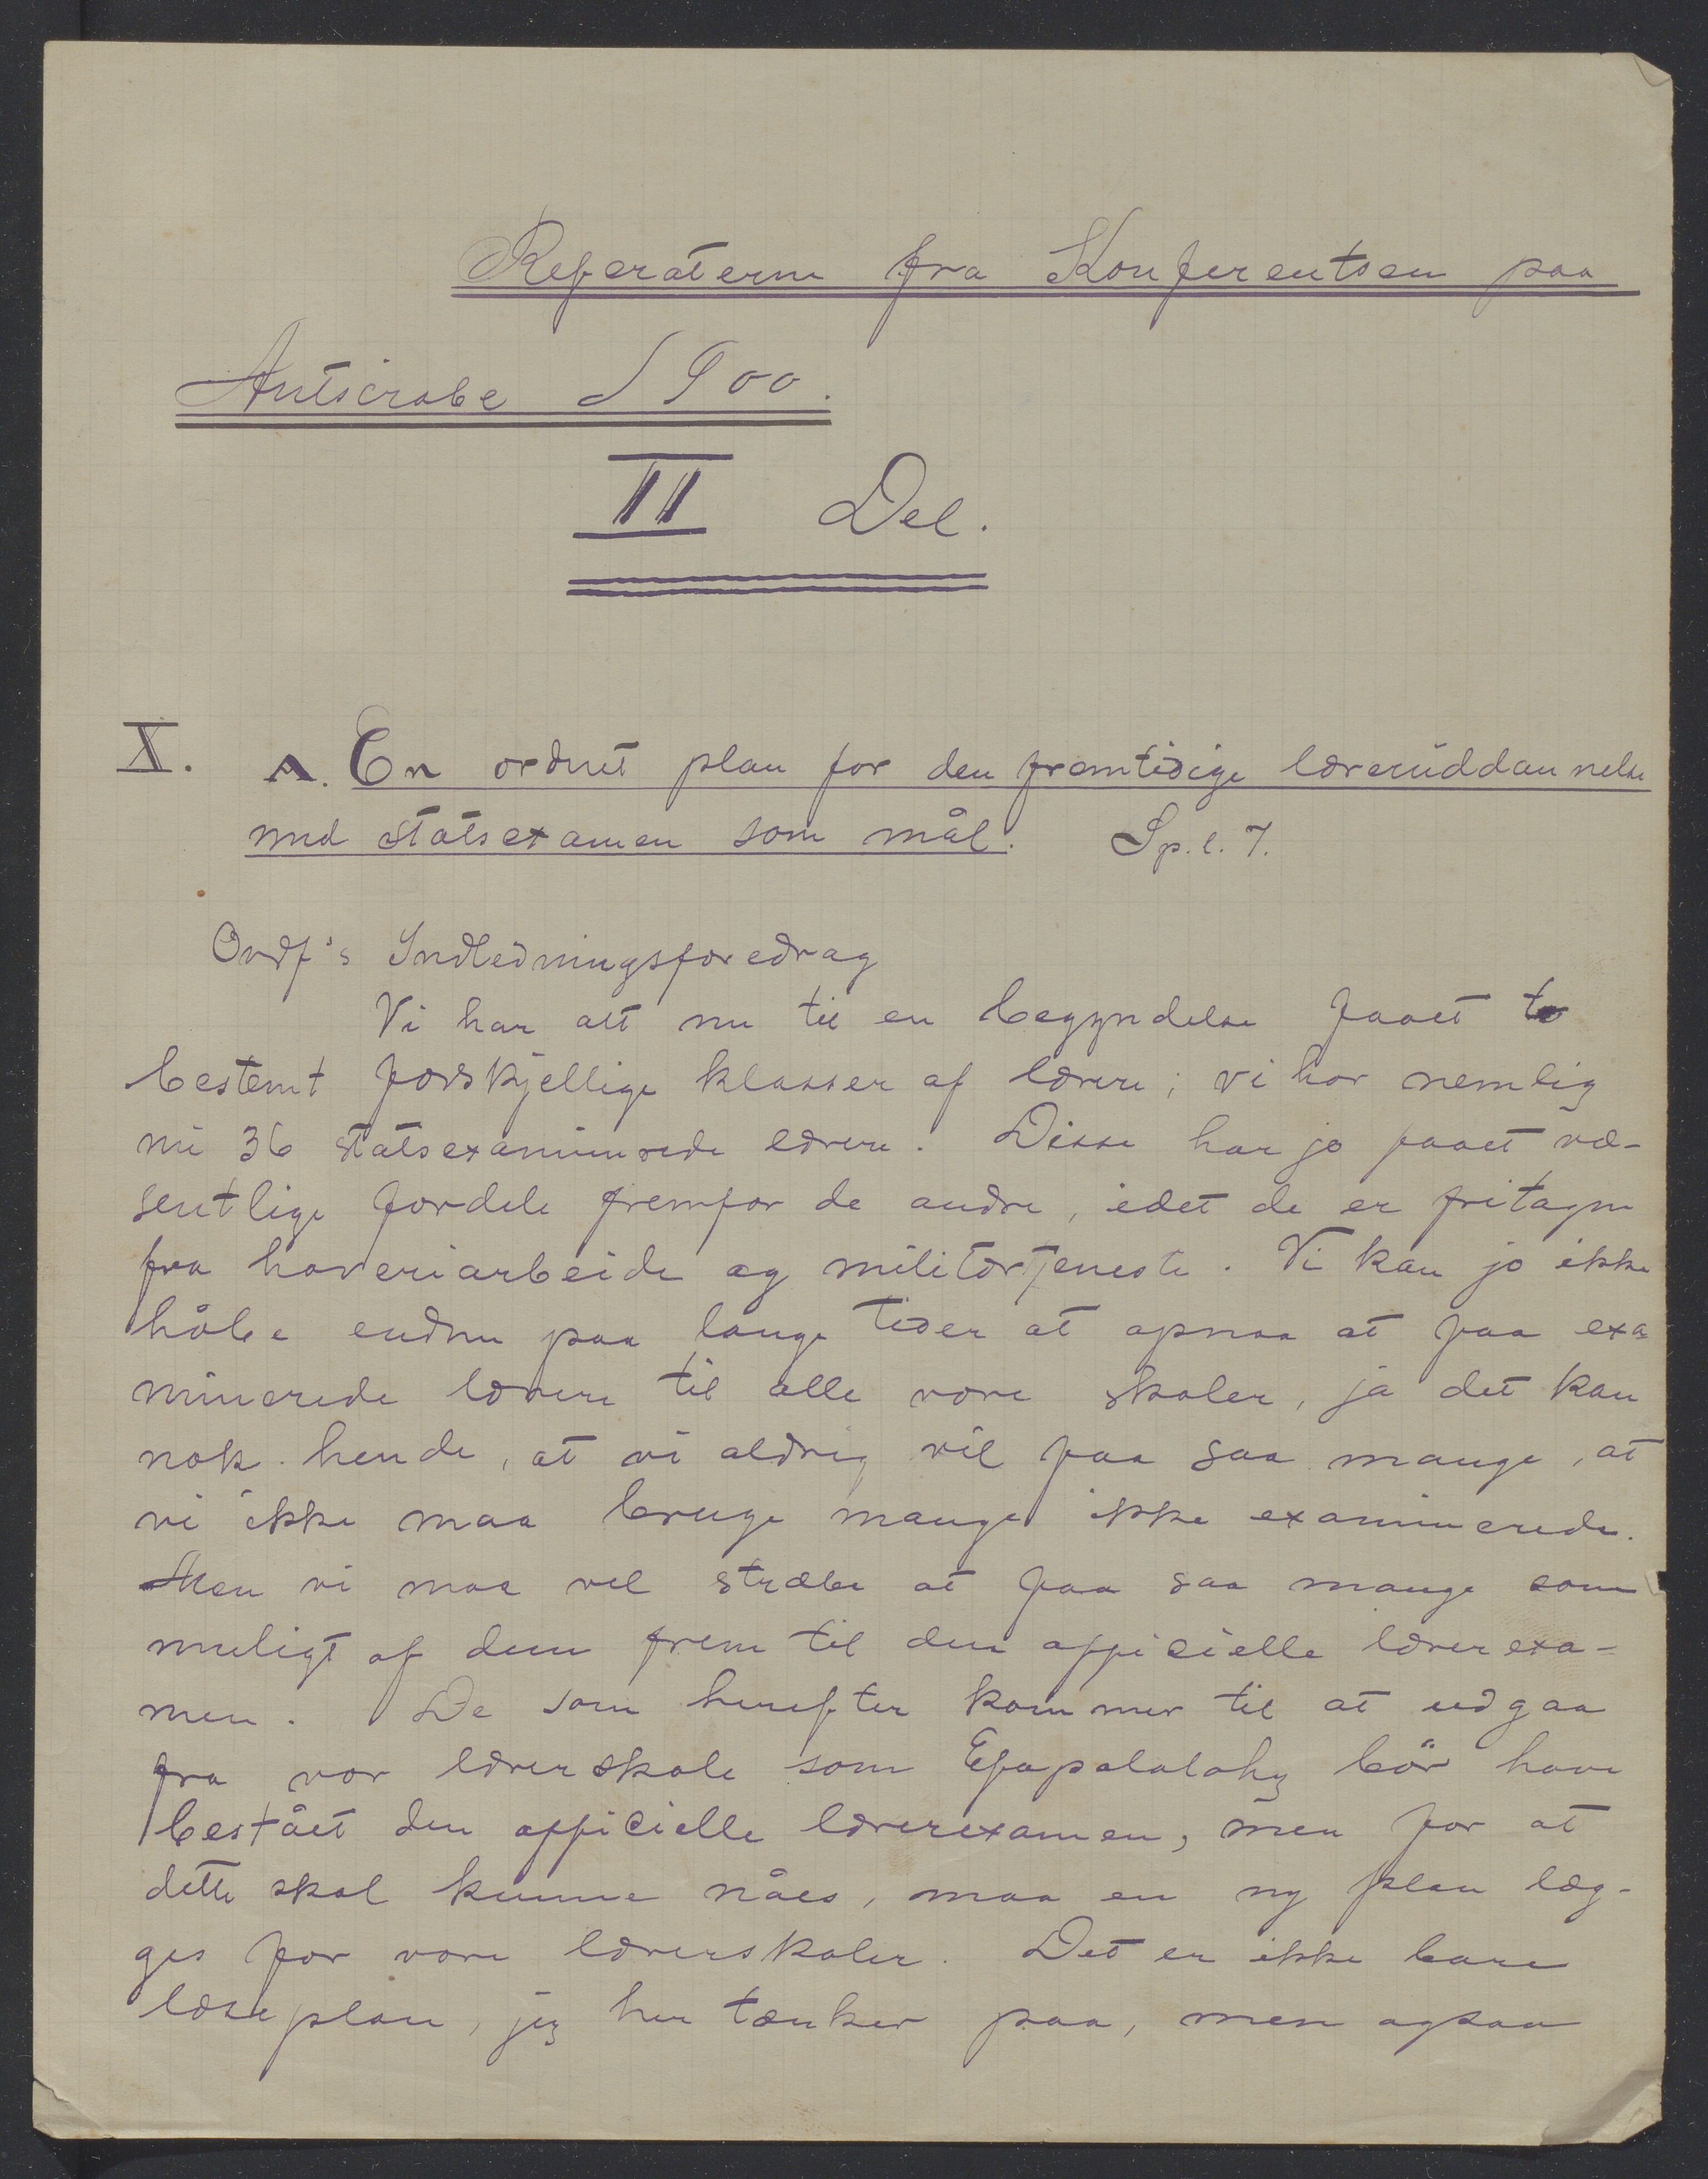 Referaterne fra Konferentsen paa
Antsirabe 1900.
II Del.
X. A. En ordnet plan for den fremtidige læreruddannelse
med statsexamen som mål. Sp. l. 7.
Ordf's Indledningsforedrag
Vi har alt nu til en begyndelse faaet to
bestemt forskjellige klasser af lærere; vi har nemlig
nu 36 statsexaminerede lærere. Disse har jo faaet væ-
sentlige fordele fremfor de andre, idet de er fritagne
fra hoveriarbeide og militærtjeneste. Vi kan jo ikke
håbe endnu paa lange tider at opnaa at faa exa-
minerede lærere til alle vore skoler, ja det kan
nok hende, at vi aldrig vil faa saa mange, at
vi ikke maa bruge mange ikke examinerede.
Men vi maa vel stræbe at faa saa mange som
muligt af dem frem til den officielle lærerexa-
men. De som herefter kommer til at udgaa
fra vor lærerskole som Efapalalahy bör have
bestået den officielle lærerexamen, men for at
dette skal kunne nåes, maa en ny plan læg-
ges for vore lærerskoler. Det er ikke bare
læseplan, jeg her tænker paa, men ogsaa